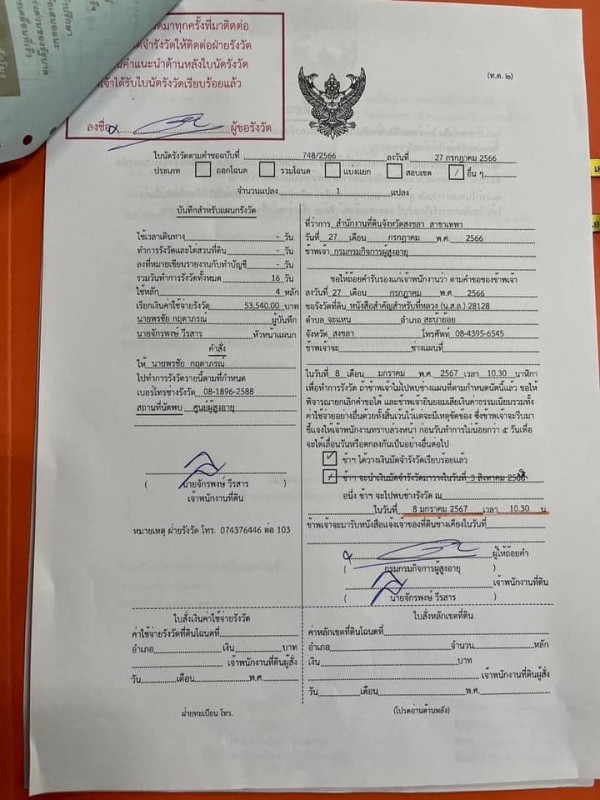 มาทุกครั้งที่มาติดต่อ
จำรังวัดให้ติดต่อฝ่ายรังวัด
คำแนะนำด้านหลังใบนัดรังวัด
เจ้าได้รับใบนัดรังวัดเรียบร้อยแล้ว
ลงชื่อ ผู้ขอรังวัด
(ท.ด. ๒)
ใบนัดรังวัดตามคำขอฉบับที่ 748/2566 ลงวันที่ 27 กรกฎาคม 2566
ประเภท ออกโฉนด รวมโฉนด แบ่งแยก สอบเขต / อื่น ๆ
จำนวนแปลง 1 แปลง
บันทึกสำหรับแผนกรังวัด
ใช้เวลาเดินทาง - วัน
ทำการรังวัดและไต่สวนที่ดิน - วัน
ลงที่หมายเขียนรายงานกับทำบัญชี - วัน
รวมวันทำการรังวัดทั้งหมด 16 วัน
ใช้หลัก 4 หลัก
เรียกเงินค่าใช้จ่ายรังวัด 53,540.00 บาท
นายพรชัย กฤดาภรณ์ ผู้บันทึก
นายจักรพงษ์ วีรสาร หัวหน้าแผนก
คำสั่ง
ให้ นายพรชัย กฤดาภรณ์
ไปทำการรังวัดรายนี้ตามที่กำหนด
เบอร์โทรช่างรังวัด 08-1896-2588
สถานที่นัดพบ ศูนย์ผู้สูงอายุ
( นายจักรพงษ์ วีรสาร )
เจ้าพนักงานที่ดิน
หมายเหตุ ฝ่ายรังวัด โทร. 074376446 ต่อ 103
ที่ว่าการ สำนักงานที่ดินจังหวัดสงขลา สาขาเทพา
วันที่ 27 เดือน กรกฎาคม พ.ศ. 2566
ข้าพเจ้า กรมกรมกิจการผู้สูงอายุ
ขอให้ถ้อยคำรับรองแก่เจ้าพนักงานว่า ตามคำขอของข้าพเจ้า
ลงวันที่ 27 เดือน กรกฎาคม พ.ศ. 2566
ขอรังวัดที่ดิน หนังสือสำคัญสำหรับที่หลวง (น.ส.ล.) 28128
ตำบล จะแหน อำเภอ สะบ้าย้อย
จังหวัด สงขลา โทรศัพท์ 08-4395-6545
ข้าพเจ้าจะ ช่างแผนที่
ในวันที่ 8 เดือน มกราคม พ.ศ. 2567 เวลา 10.30 นาฬิกา
เพื่อทำการรังวัด ถ้าข้าพเจ้าไม่ไปพบช่างแผนที่ตามกำหนดนัดนี้แล้ว ขอให้
พิจารณายกเลิกคำขอใด และข้าพเจ้ายินยอมเสียเงินค่าธรรมเนียมรวมทั้ง
ค่าใช้จ่ายอย่างอื่นด้วยทั้งสิ้นเว้นไว้แต่จะมีเหตุขัดข้อง ซึ่งข้าพเจ้าจะรีบมา
ชี้แจงให้เจ้าพนักงานทราบล่วงหน้า ก่อนวันทำการไม่น้อยกว่า ๕ วันเพื่อ
จะได้เลื่อนวันหรือตกลงกันเป็นอย่างอื่นต่อไป
ข้าฯ ได้วางเงินมัดจำรังวัดเรียบร้อยแล้ว
/ ข้าฯ จะนำเงินมัดจำรังวัดมาวางในวันที่ 3 สิงหาคม
อนึ่ง ข้าฯ จะไปพบช่างรังวัด ณ
ในวันที่ 8 มกราคม 2567 เวลา 10.30 น
ข้าพเจ้าจะมารับหนังสือแจ้งเจ้าของที่ดินข้างเคียงในวันที่
ผู้ให้ถ้อยคำ
( กรมกรมกิจการผู้สูงอายุ )
เจ้าพนักงานที่ดิน
( นายจักรพงษ์ วีรสาร )
ใบสั่งเงินค่าใช้จ่ายรังวัด
ค่าใช้จ่ายรังวัดที่ดินโฉนดที่
อำเภอ เงิน บาท
เจ้าพนักงานที่ดินผู้สั่ง
วัน เดือน พ.ศ.
ฝ่ายทะเบียน โทร.
ใบสั่งหลักเขตที่ดิน
ค่าหลักเขตที่ดินโฉนดที่
อำเภอ จำนวน หลัก
เงิน บาท
เจ้าพนักงานที่ดินผู้สั่ง
วัน เดือน พ.ศ.
(โปรดอ่านด้านหลัง)